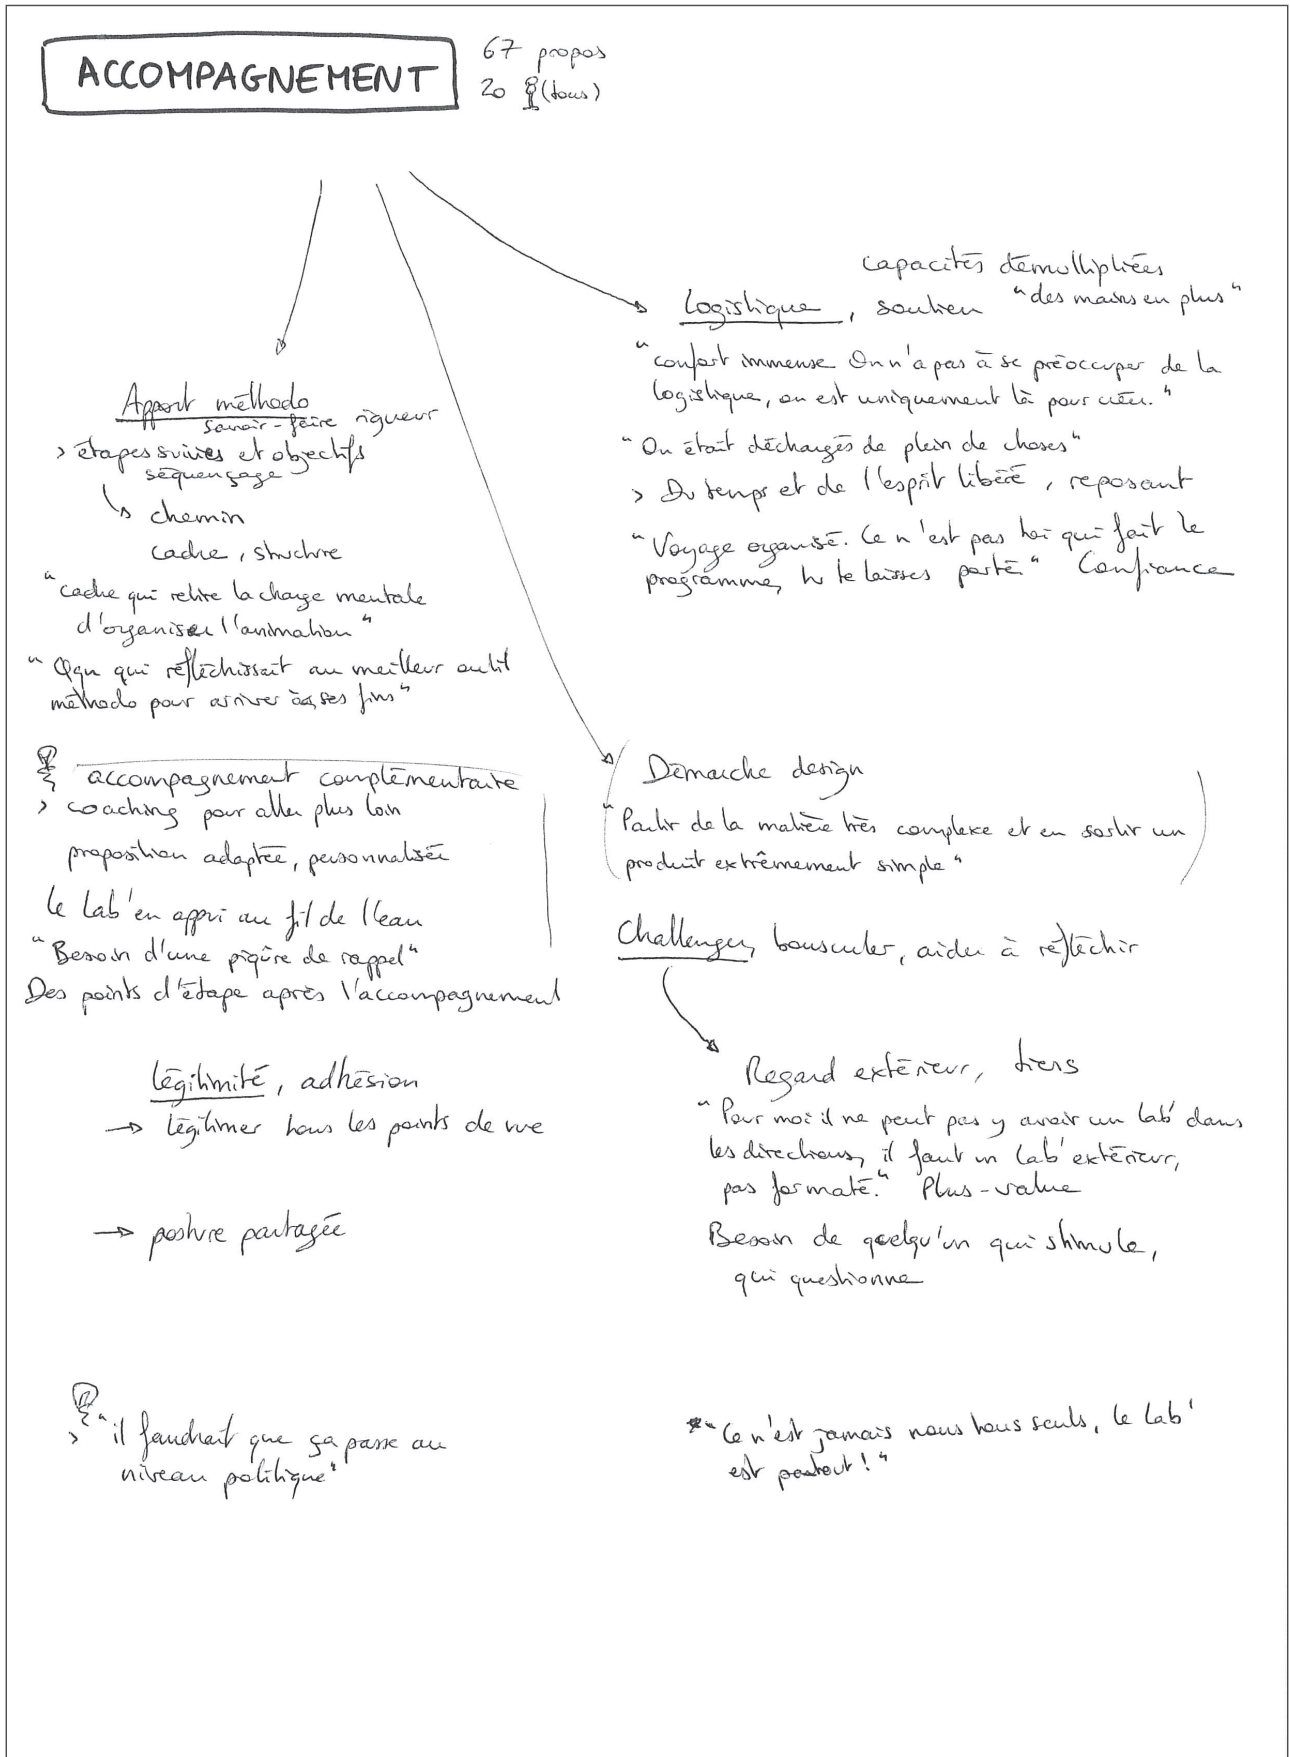 ACCOMPAGNEMENT
67 propos
20 (tous)
Apport méthodo
savoir-faire rigueur
> étapes suivies et objectifs
séquençage
chemin
cadre, structure
"cadre qui retire la charge mentale
d'organiser l'animation"
"Qqn qui réfléchissait au meilleur outil
méthodo pour arriver à ses fins"
accompagnement complémentaire
> coaching pour aller plus loin
proposition adaptée, personnalisée
le Lab' en appui au fil de l'eau
"Besoin d'une piqûre de rappel"
Des points d'étape après l'accompagnement
Légitimité, adhésion
→ légitimer tous les points de vue
→ posture partagée
> "il faudrait que ça passe au
niveau politique"
capacités démultipliées
Logistique, soutien "des mains en plus"
"confort immense On n'a pas à se préoccuper de la
logistique, on est uniquement là pour créer."
"On était déchargés de plein de choses"
> Du temps et de l'esprit libéré, reposant
"Voyage organisé. Ce n'est pas toi qui fait le
programme, tu te laisses porté" Confiance
Démarche design
"Partir de la matière très complexe et en sortir un
produit extrêmement simple"
Challenger, bousculer, aider à réfléchir
Regard extérieur, tiers
"Pour moi il ne peut pas y avoir un lab' dans
les directions, il faut un lab' extérieur,
pas formaté." Plus-value
Besoin de quelqu'un qui stimule,
qui questionne
*"Ce n'est jamais nous tous seuls, le Lab'
est partout !"